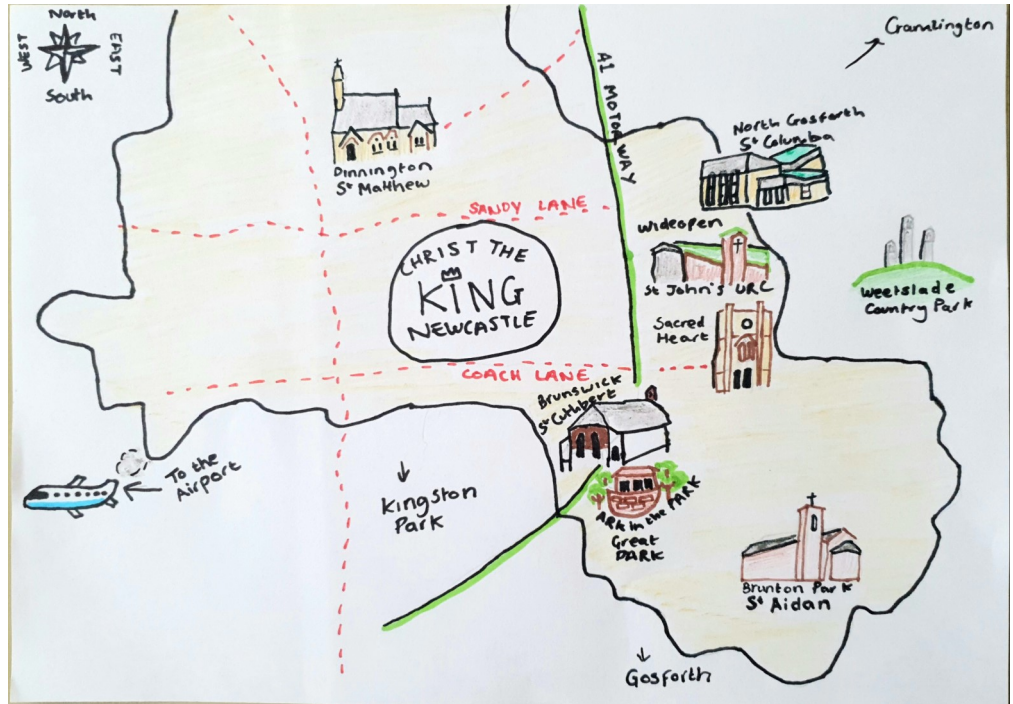 North
WEST
EAST
South
Cramlington
A1 MOTORWAY
Dinnington
St Matthew
North Gosforth
St Columba
SANDY LANE
Wideopen
St John's URC
CHRIST THE
KING
NEWCASTLE
Weetslade
Country Park
Sacred
Heart
COACH LANE
Brunswick
St Cuthbert
To the
Airport
Kingston
Park
ARK in the PARK
Great
PARK
Brunton Park
St Aidan
Gosforth